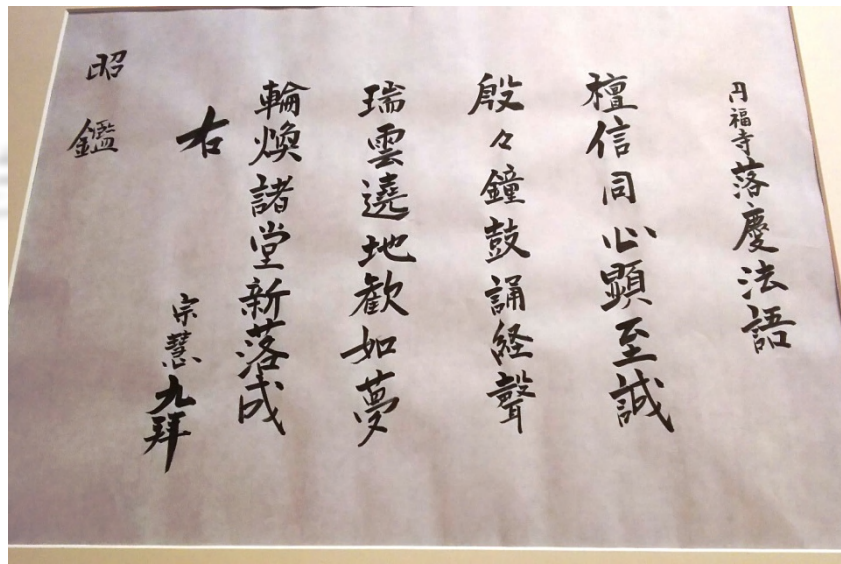 円福寺落慶法語
檀信同心顕至誠
殷々鐘鼓誦経聲
瑞雲遶地歓如夢
輪煥諸堂新落成
右
宗慧九拜
昭鑑